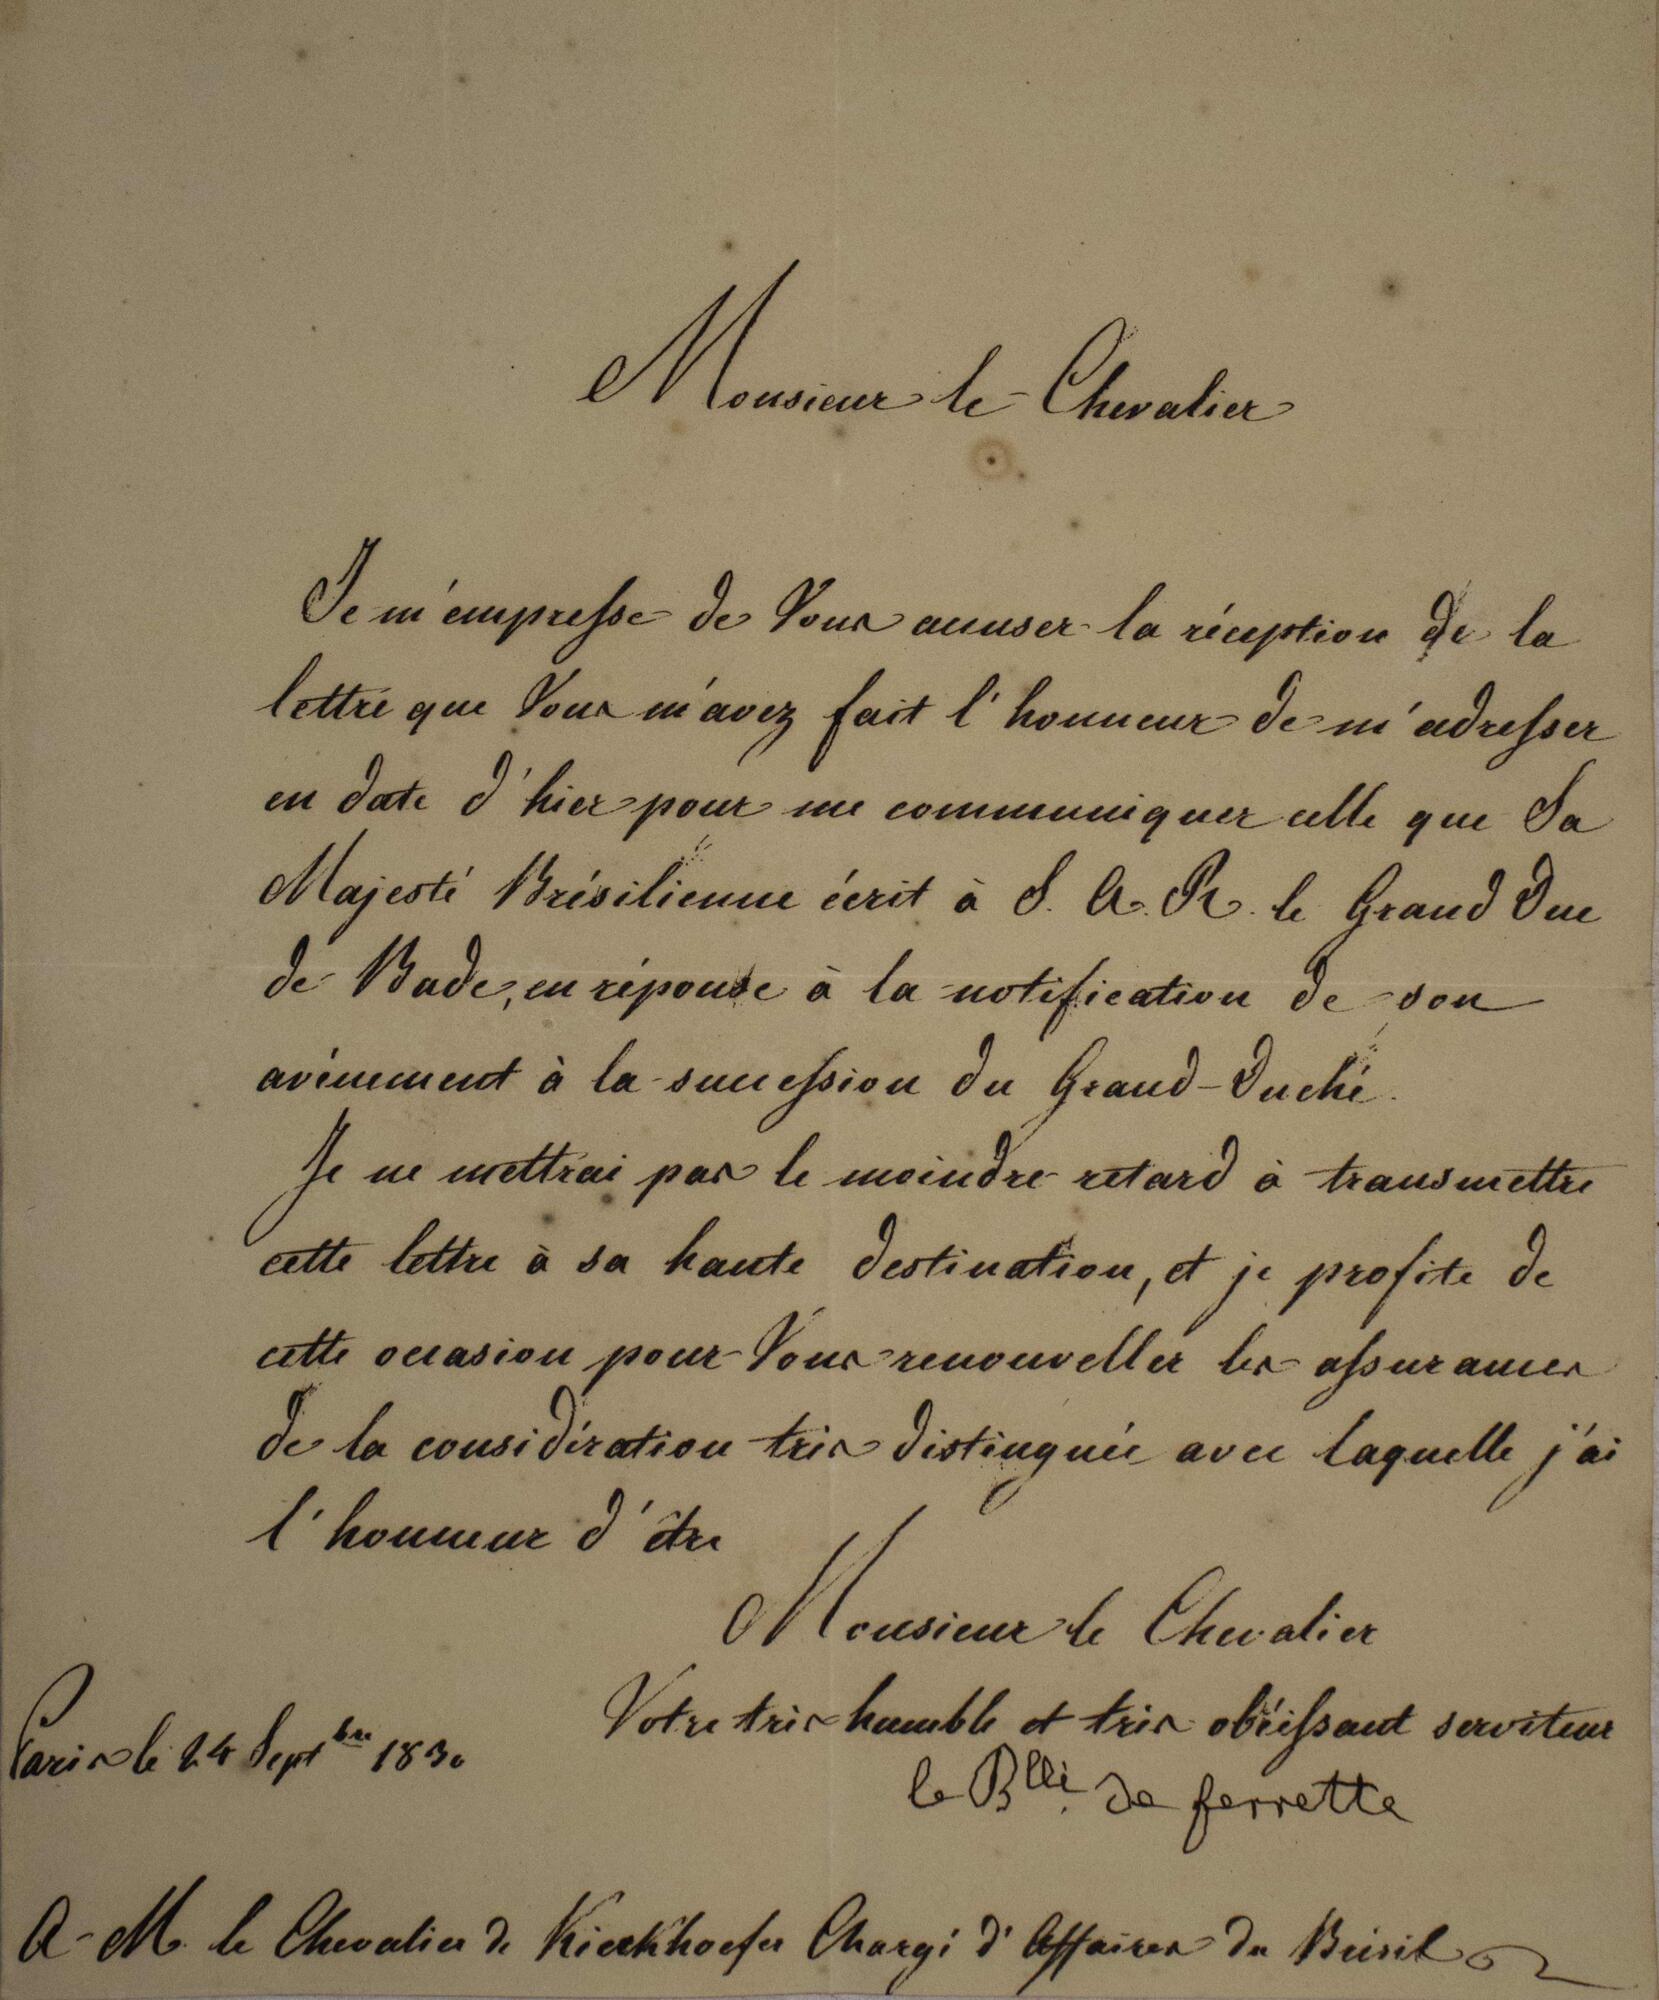 Monsieur le Chevalier
Je m'empresse de Vous accuser la réception de la
lettre que Vous m'avez fait l'honneur de m'adresser
en date d'hier pour me communiquer celle que Sa
Majesté Brésilienne écrit à S. A. R. le Grand Duc
de Bade, en réponse à la notification de son
avénement à la succession du Grand-Duché.
Je ne mettrai pas le moindre retard à transmettre
cette lettre à sa haute destination, et je profite de
cette occasion pour Vous renouveller les assurances
de la considération très distinguée avec laquelle j'ai
l'honneur d'être
Monsieur le Chevalier
Votre très humble et très obéissant serviteur
Paris le 24 Septbre 1830
le Blli. de ferrette
A M. le Chevalier de Kierkhoefer Chargé d'Affaires du Brésil